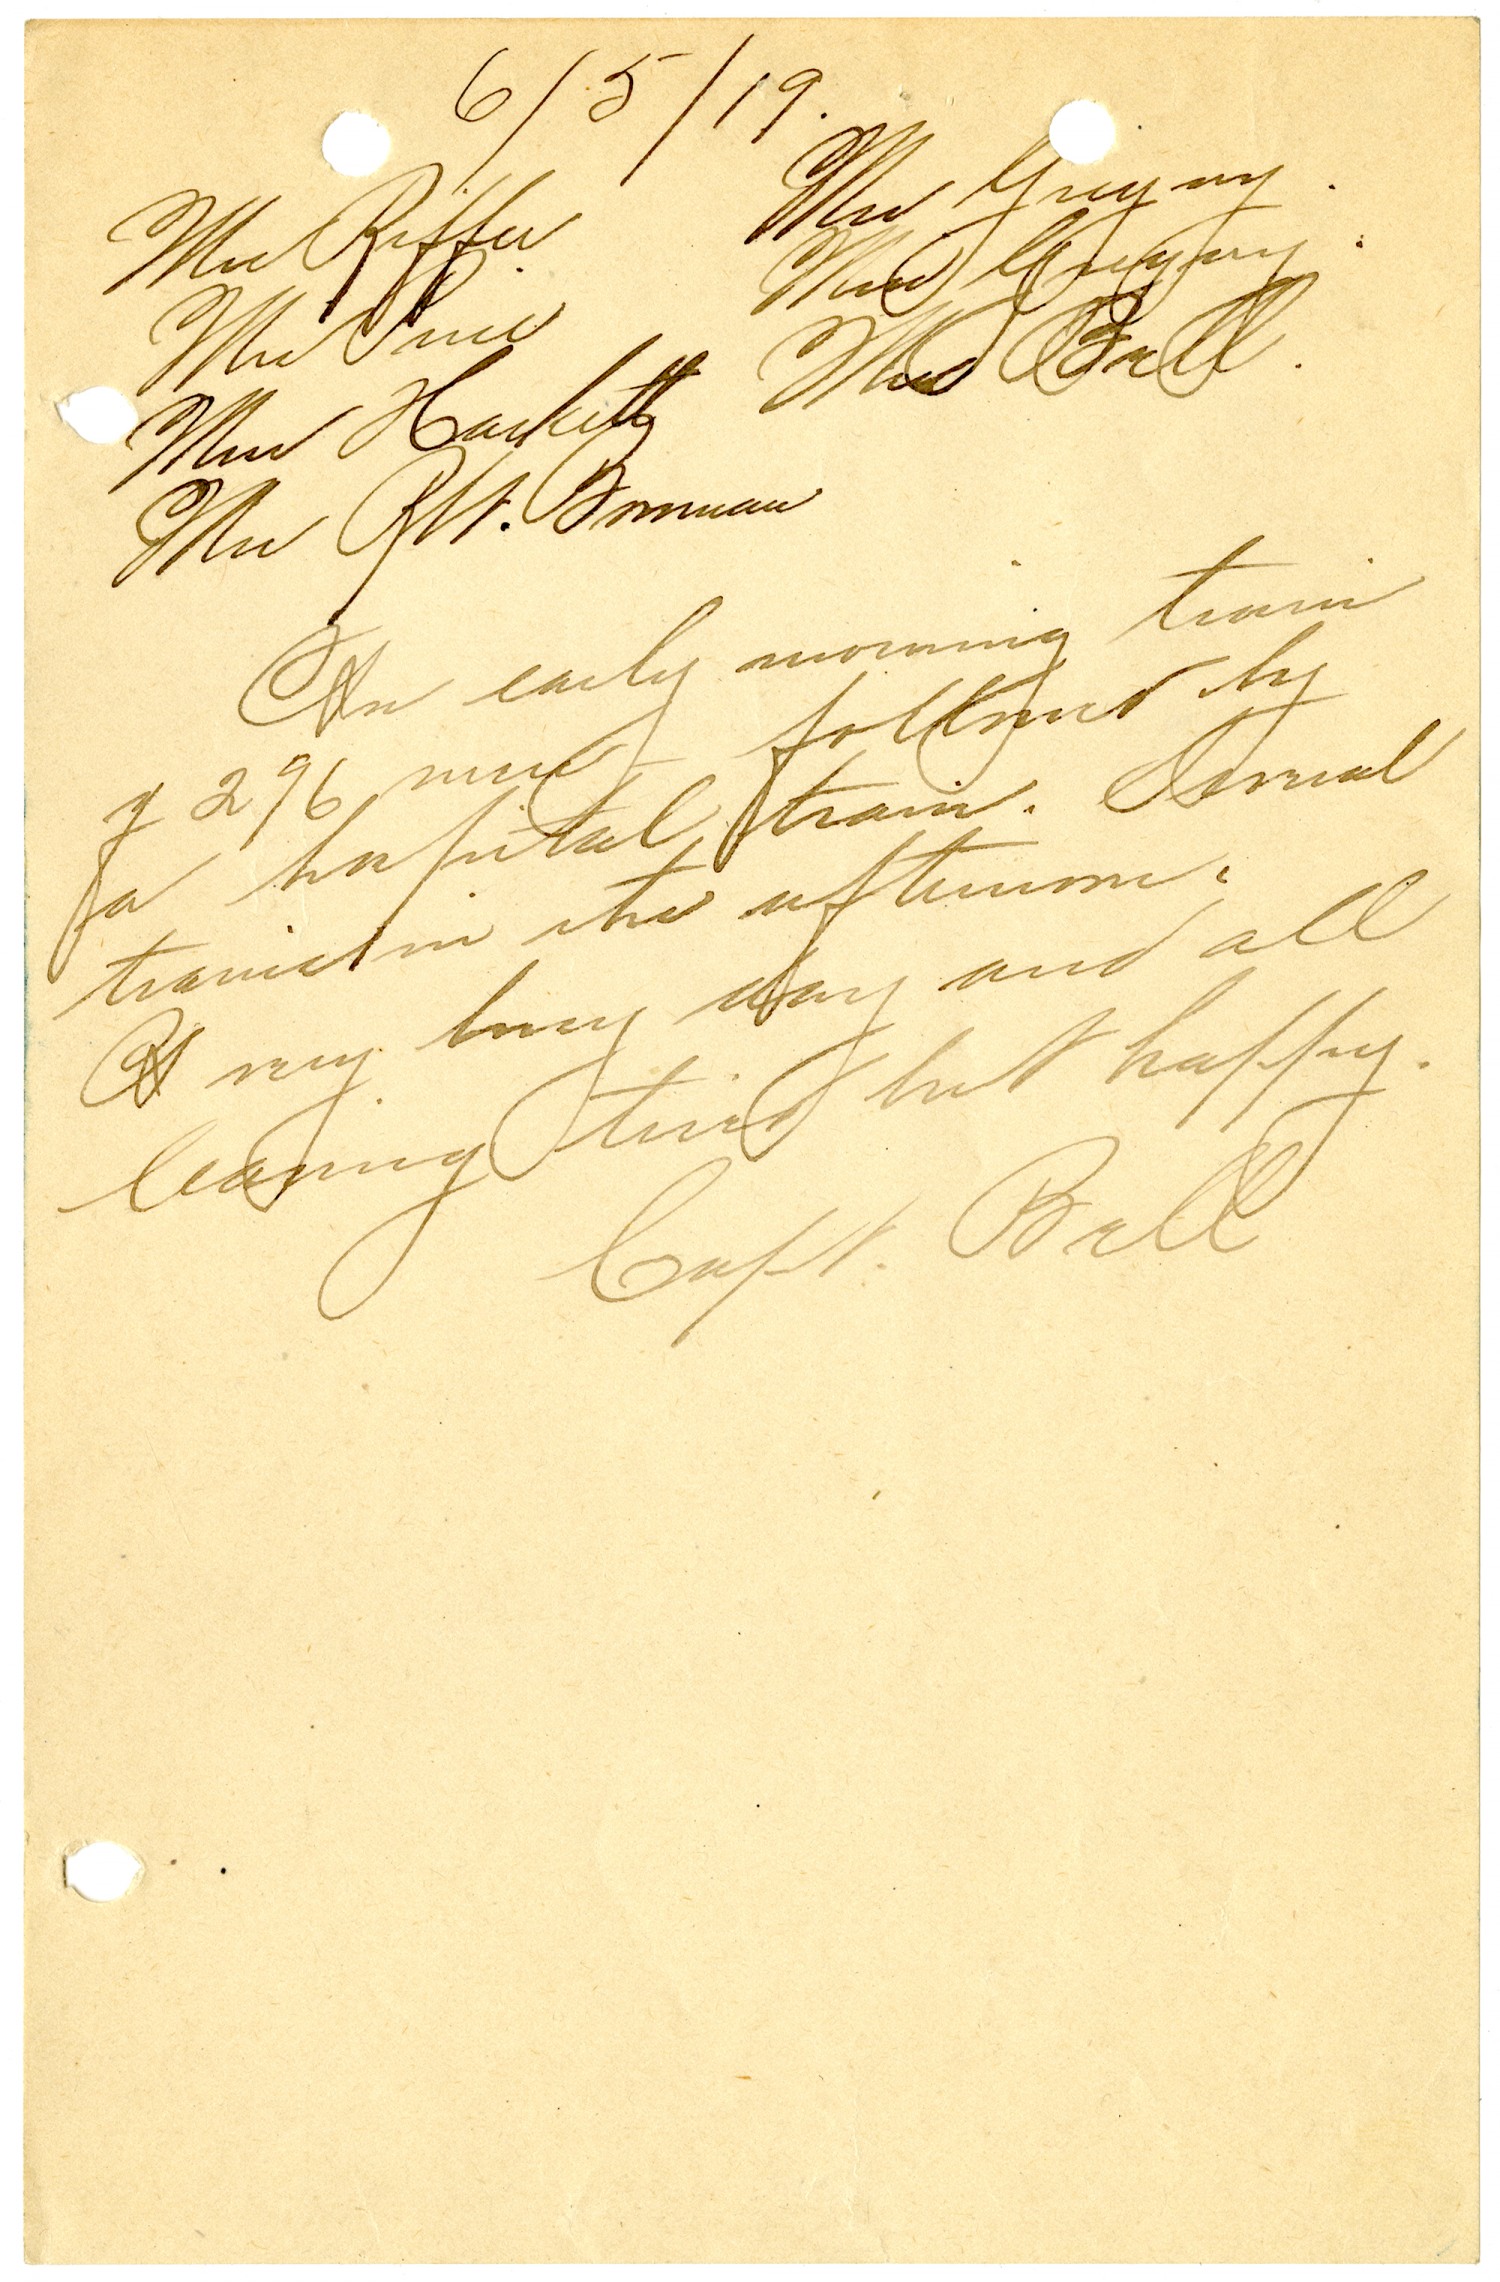 6/5/19.
Mrs Riffer.
Mrs Price
Mrs Hackett
Mrs R. W. Bowman
Mrs Gregory.
Miss Gregory.
Mrs Ball.
An early morning train
of 296 men followed by
a hospital train. Several
trains in the afternoon.
A very busy day and all
leaving tired but happy.
Capt. Ball